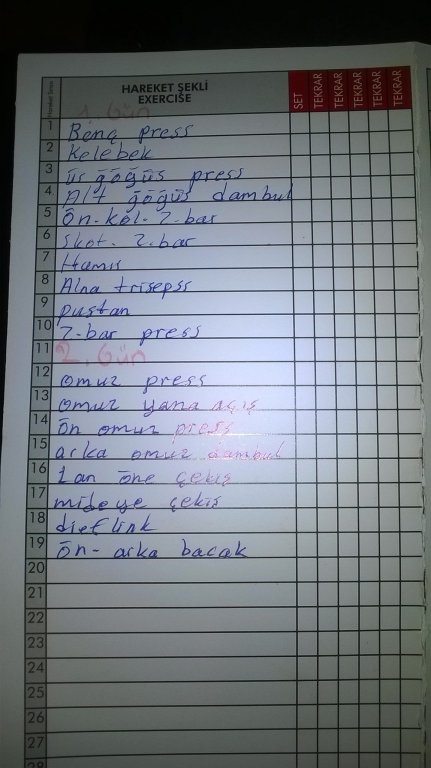 Hareket Sırası
HAREKET ŞEKLİ
EXERCISE
SET
TEKRAR
TEKRAR
TEKRAR
TEKRAR
TEKRAR
1. Gün
1 Benç press
2 Kelebek
3 üs göğüs press
4 Alt göğüs dambul
5 Ön-kol-Z.bar
6 Skot. Z.bar
7 Hamır
8 Alna trisepss
9 pustan
10 Z-bar press
11 2. Gün
12 omuz press
13 omuz yana açış
14 ön omuz press
15 arka omuz dambul
16 Lan öne çekiş
17 mideye çekiş
18 dietlink
19 ön-arka bacak
20
21
22
23
24
25
26
27
28